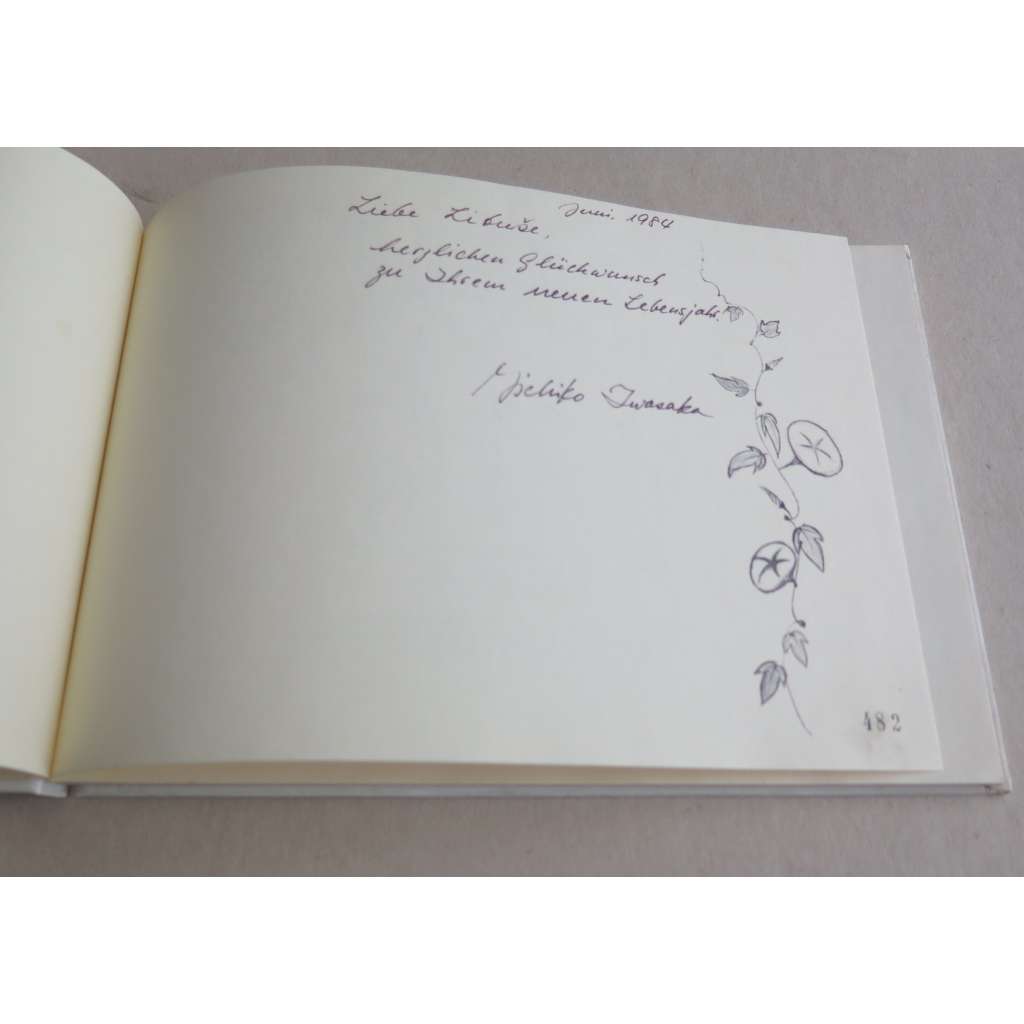 Juni. 1984
Liebe Libuše,
herzlichen Glückwunsch
zu Ihrem neuen Lebensjahr.
Michiko Iwasaka
482